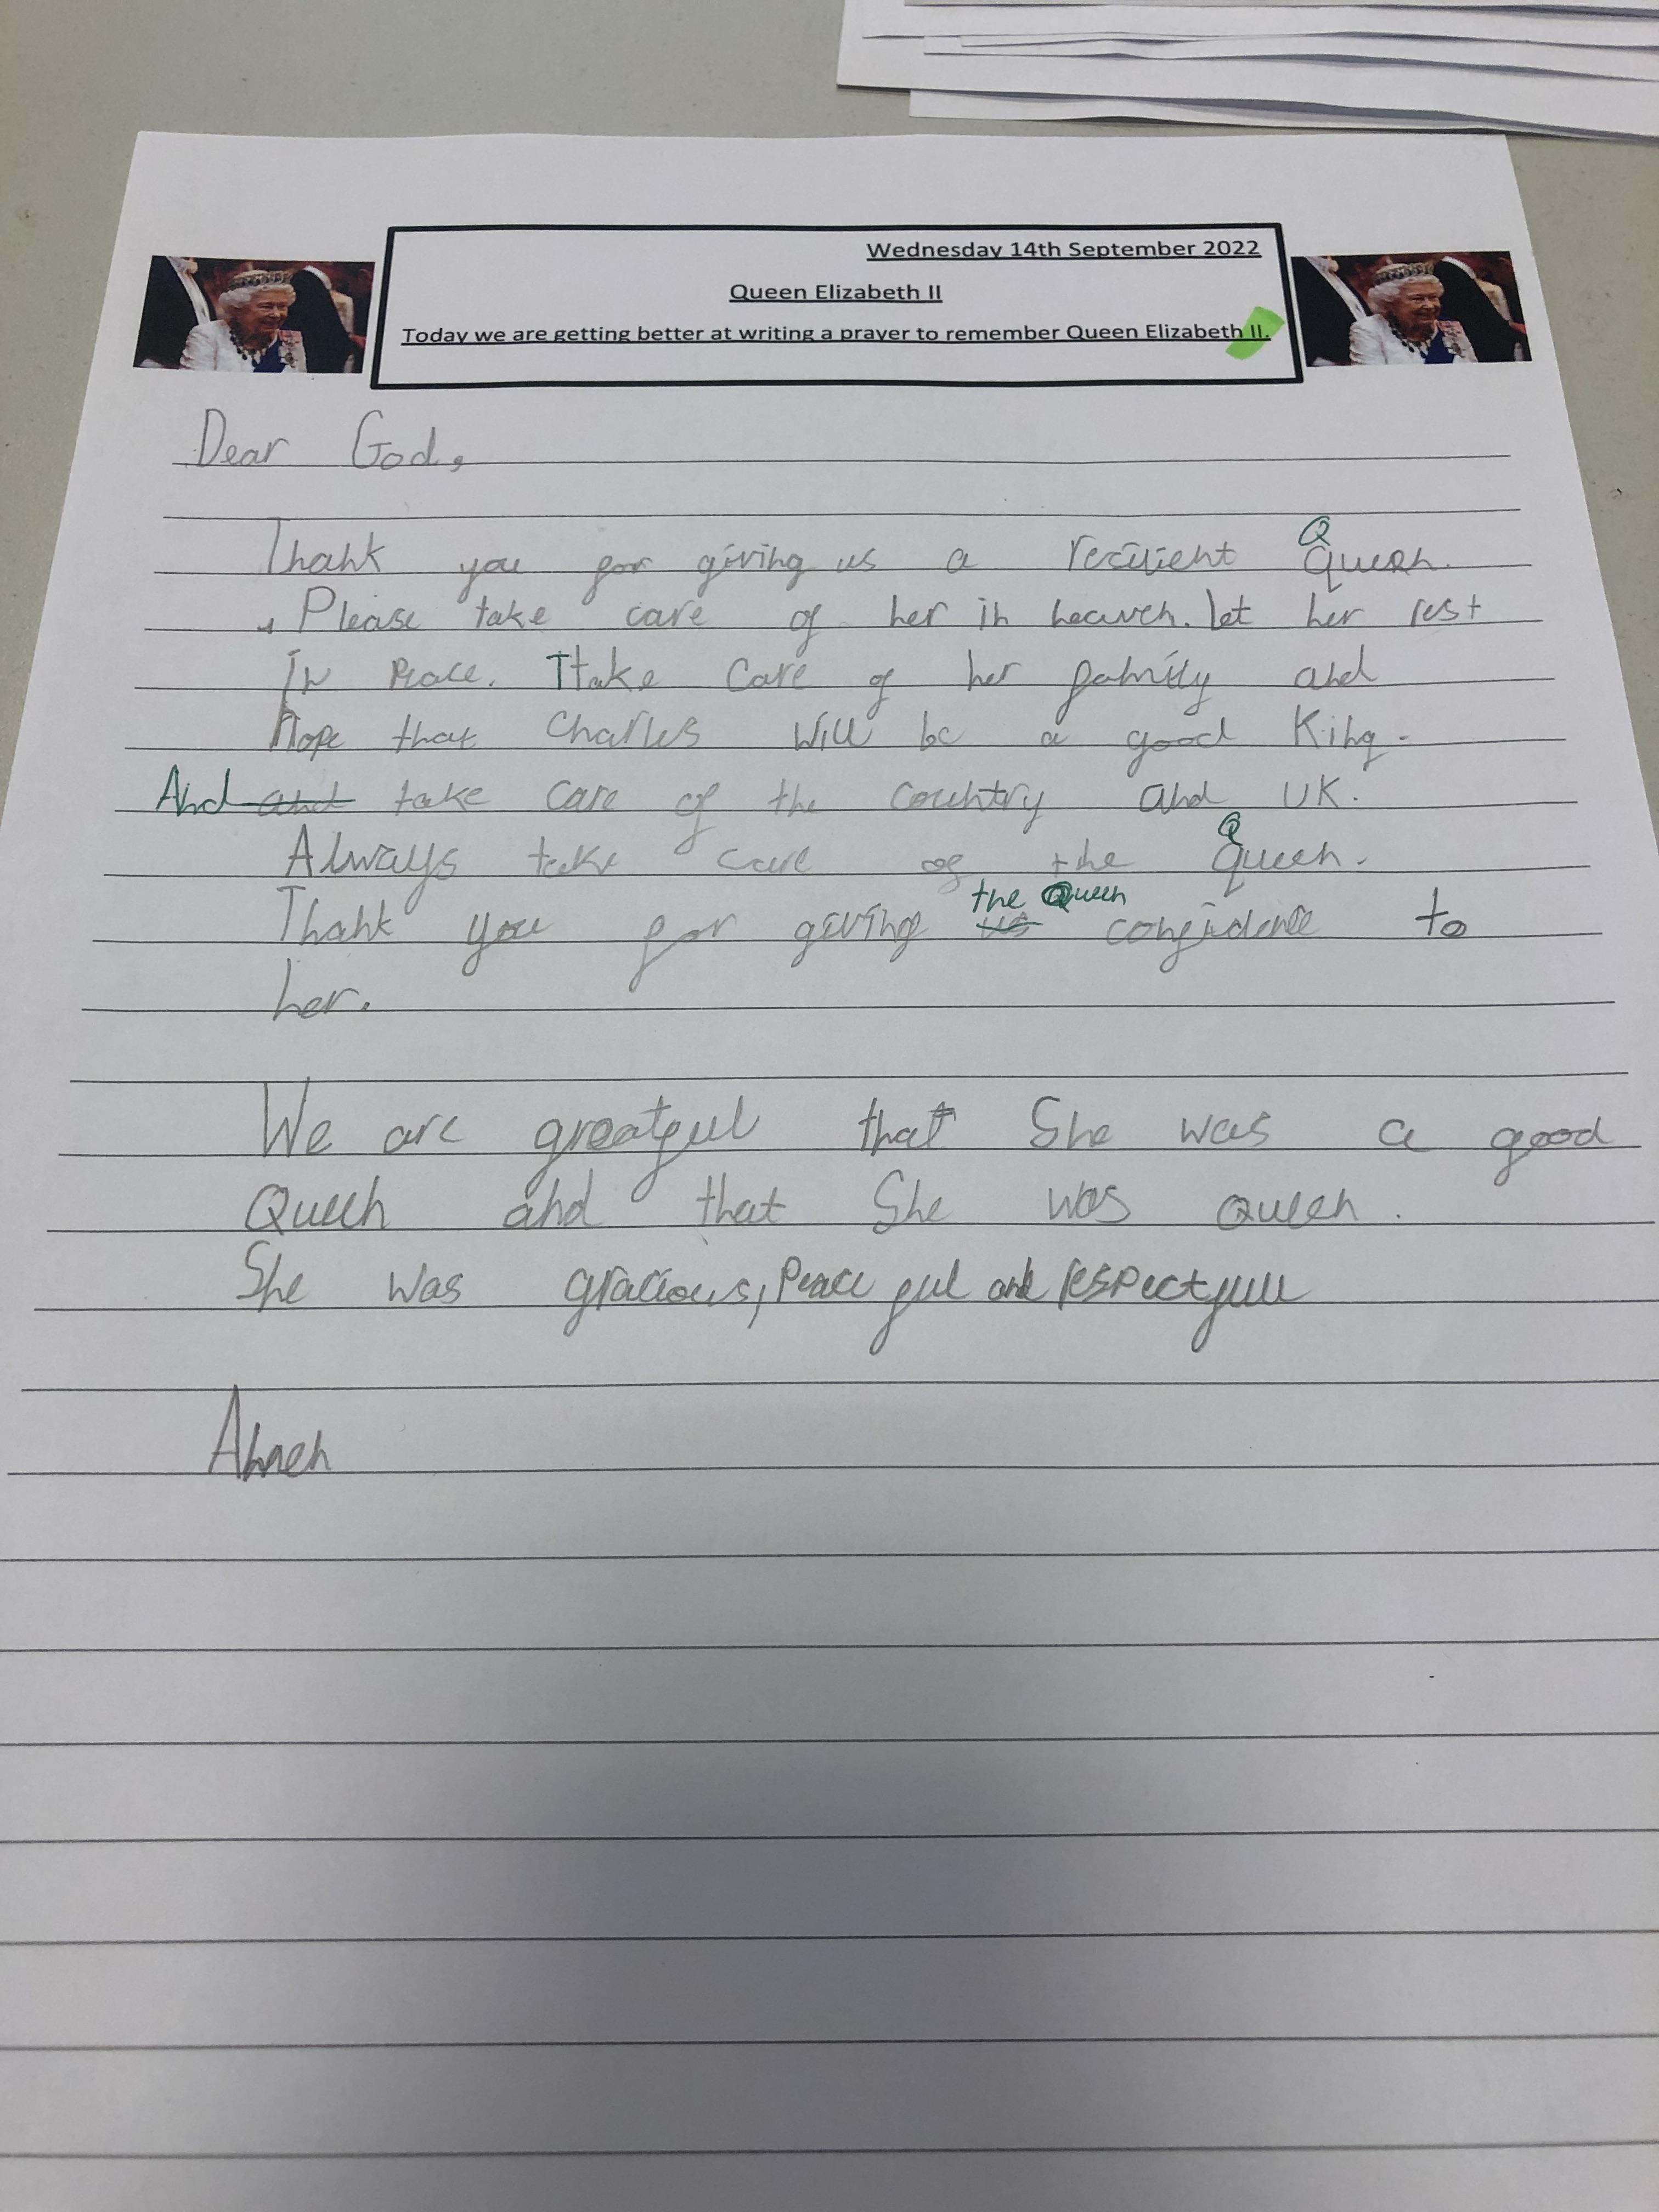 Wednesday 14th September 2022
Queen Elizabeth II
Today we are getting better at writing a prayer to remember Queen Elizabeth II.
Dear God,
Q
Thank you for giving us a resilient queen.
Please take care of her in heaven. let her rest
In Peace. Ttake care of her family and
Hope that Charles will be a good King.
And and take care of the country and UK.
Q
Always take care of the queen.
the Queen
Thank you for giving us confidence to
her.
We are greatful that She was a good
Queen and that She was queen.
She was gracious, Peace ful and respectfull
Amen